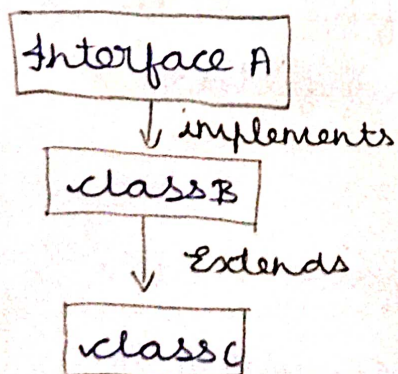 Interface A
implements
class B
Extends
class C